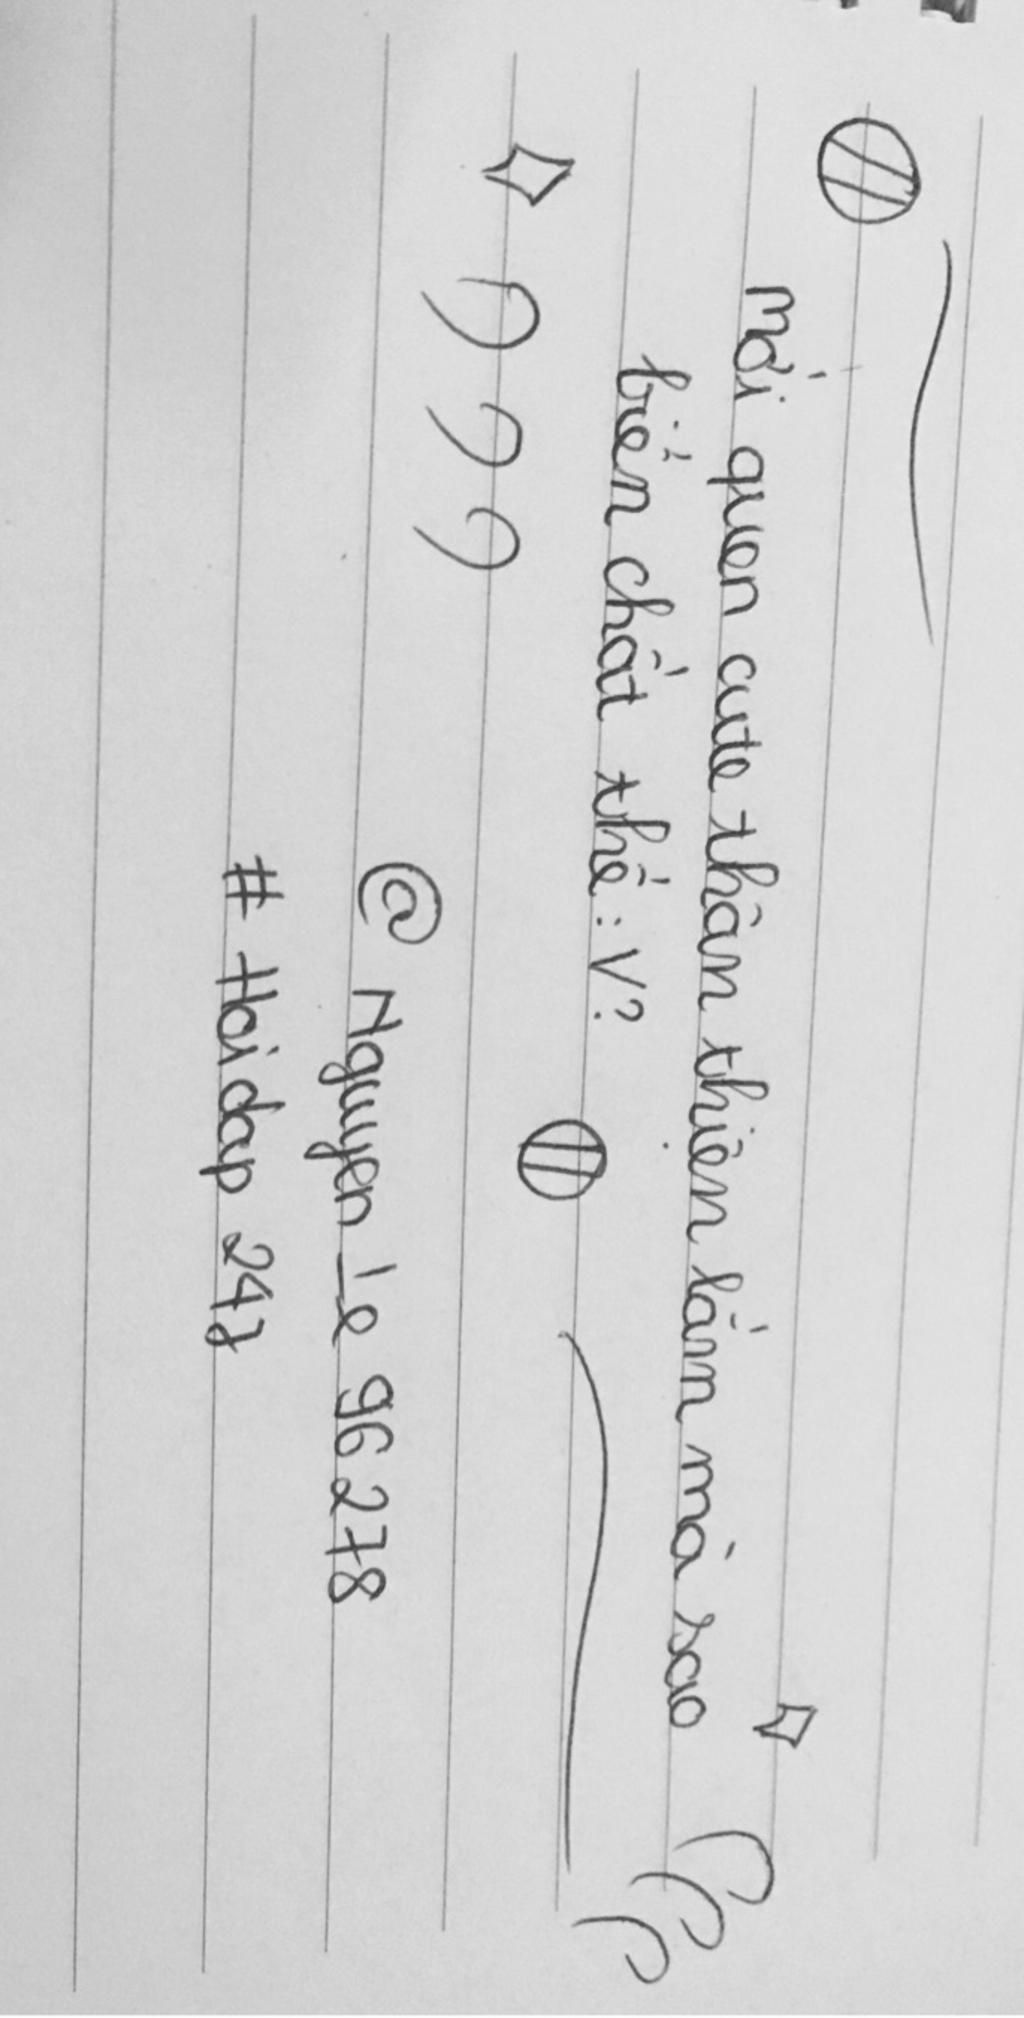 Mới quen cute thân thiên lắm mà sao
biến chất thế : V?
@ Nguyen_le 96278
# Hoidap 247